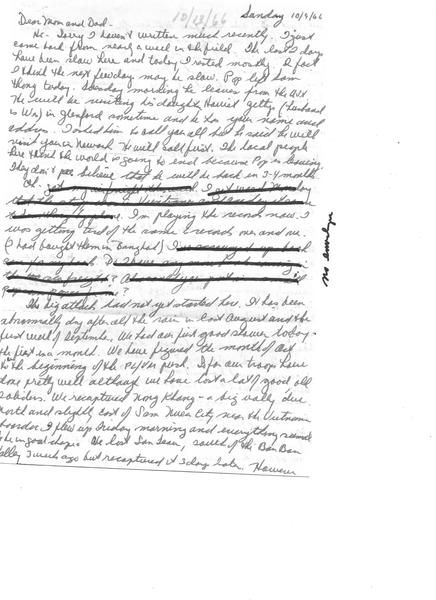 10/12/66
Sunday 10/9/66
Dear Mom and Dad -
Hi - Sorry I haven't written much recently. I just
came back from nearly a week in the field. The last 2 days
have been slow here and today I rested mostly. In fact
I think the next few days may be slow. Pop left Sam
Thong today. Tuesday morning he leaves from the
He will be visiting his daughter, Harriet Getty (husband
is Wm) in Glenford sometime and he has your name and
address. I asked him to call you all but he said he will
visit you in Newark. He will call first. The local people
here think the world is going to end because Pop is leaving
They don't believe that he will be back in 3-4 months
Oh.
I'm playing the records now. I
was getting tired of the same records over and over.
(I had bought them in Bangkok)
no envelope
The big attack had not yet started here. It has been
abnormally dry after all the rain in last August and the
first week of September. We had our first good shower today -
the first in a month. We have figured the month of Oct
to the beginning of the push. So far our troops have
done pretty well although we have lost a lot of good old
soldiers. We recaptured Nong Khang - a big valley due
north and slightly east of Sam Neua City near the Vietnam
boarder. I flew up Friday morning and everything seemed
to be in good shape. We lost San south of the Ban Ban
Valley 3 weeks ago but recaptured it 3 days later. However